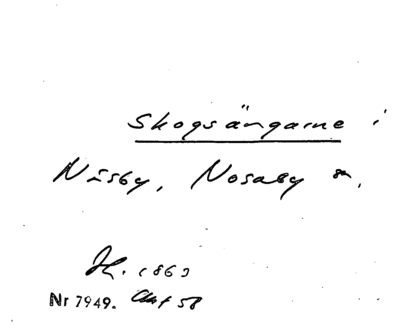 Skogsängarne i
Näsby, Nosaby sn.
H. 1863
Nr 7949. Akt 58